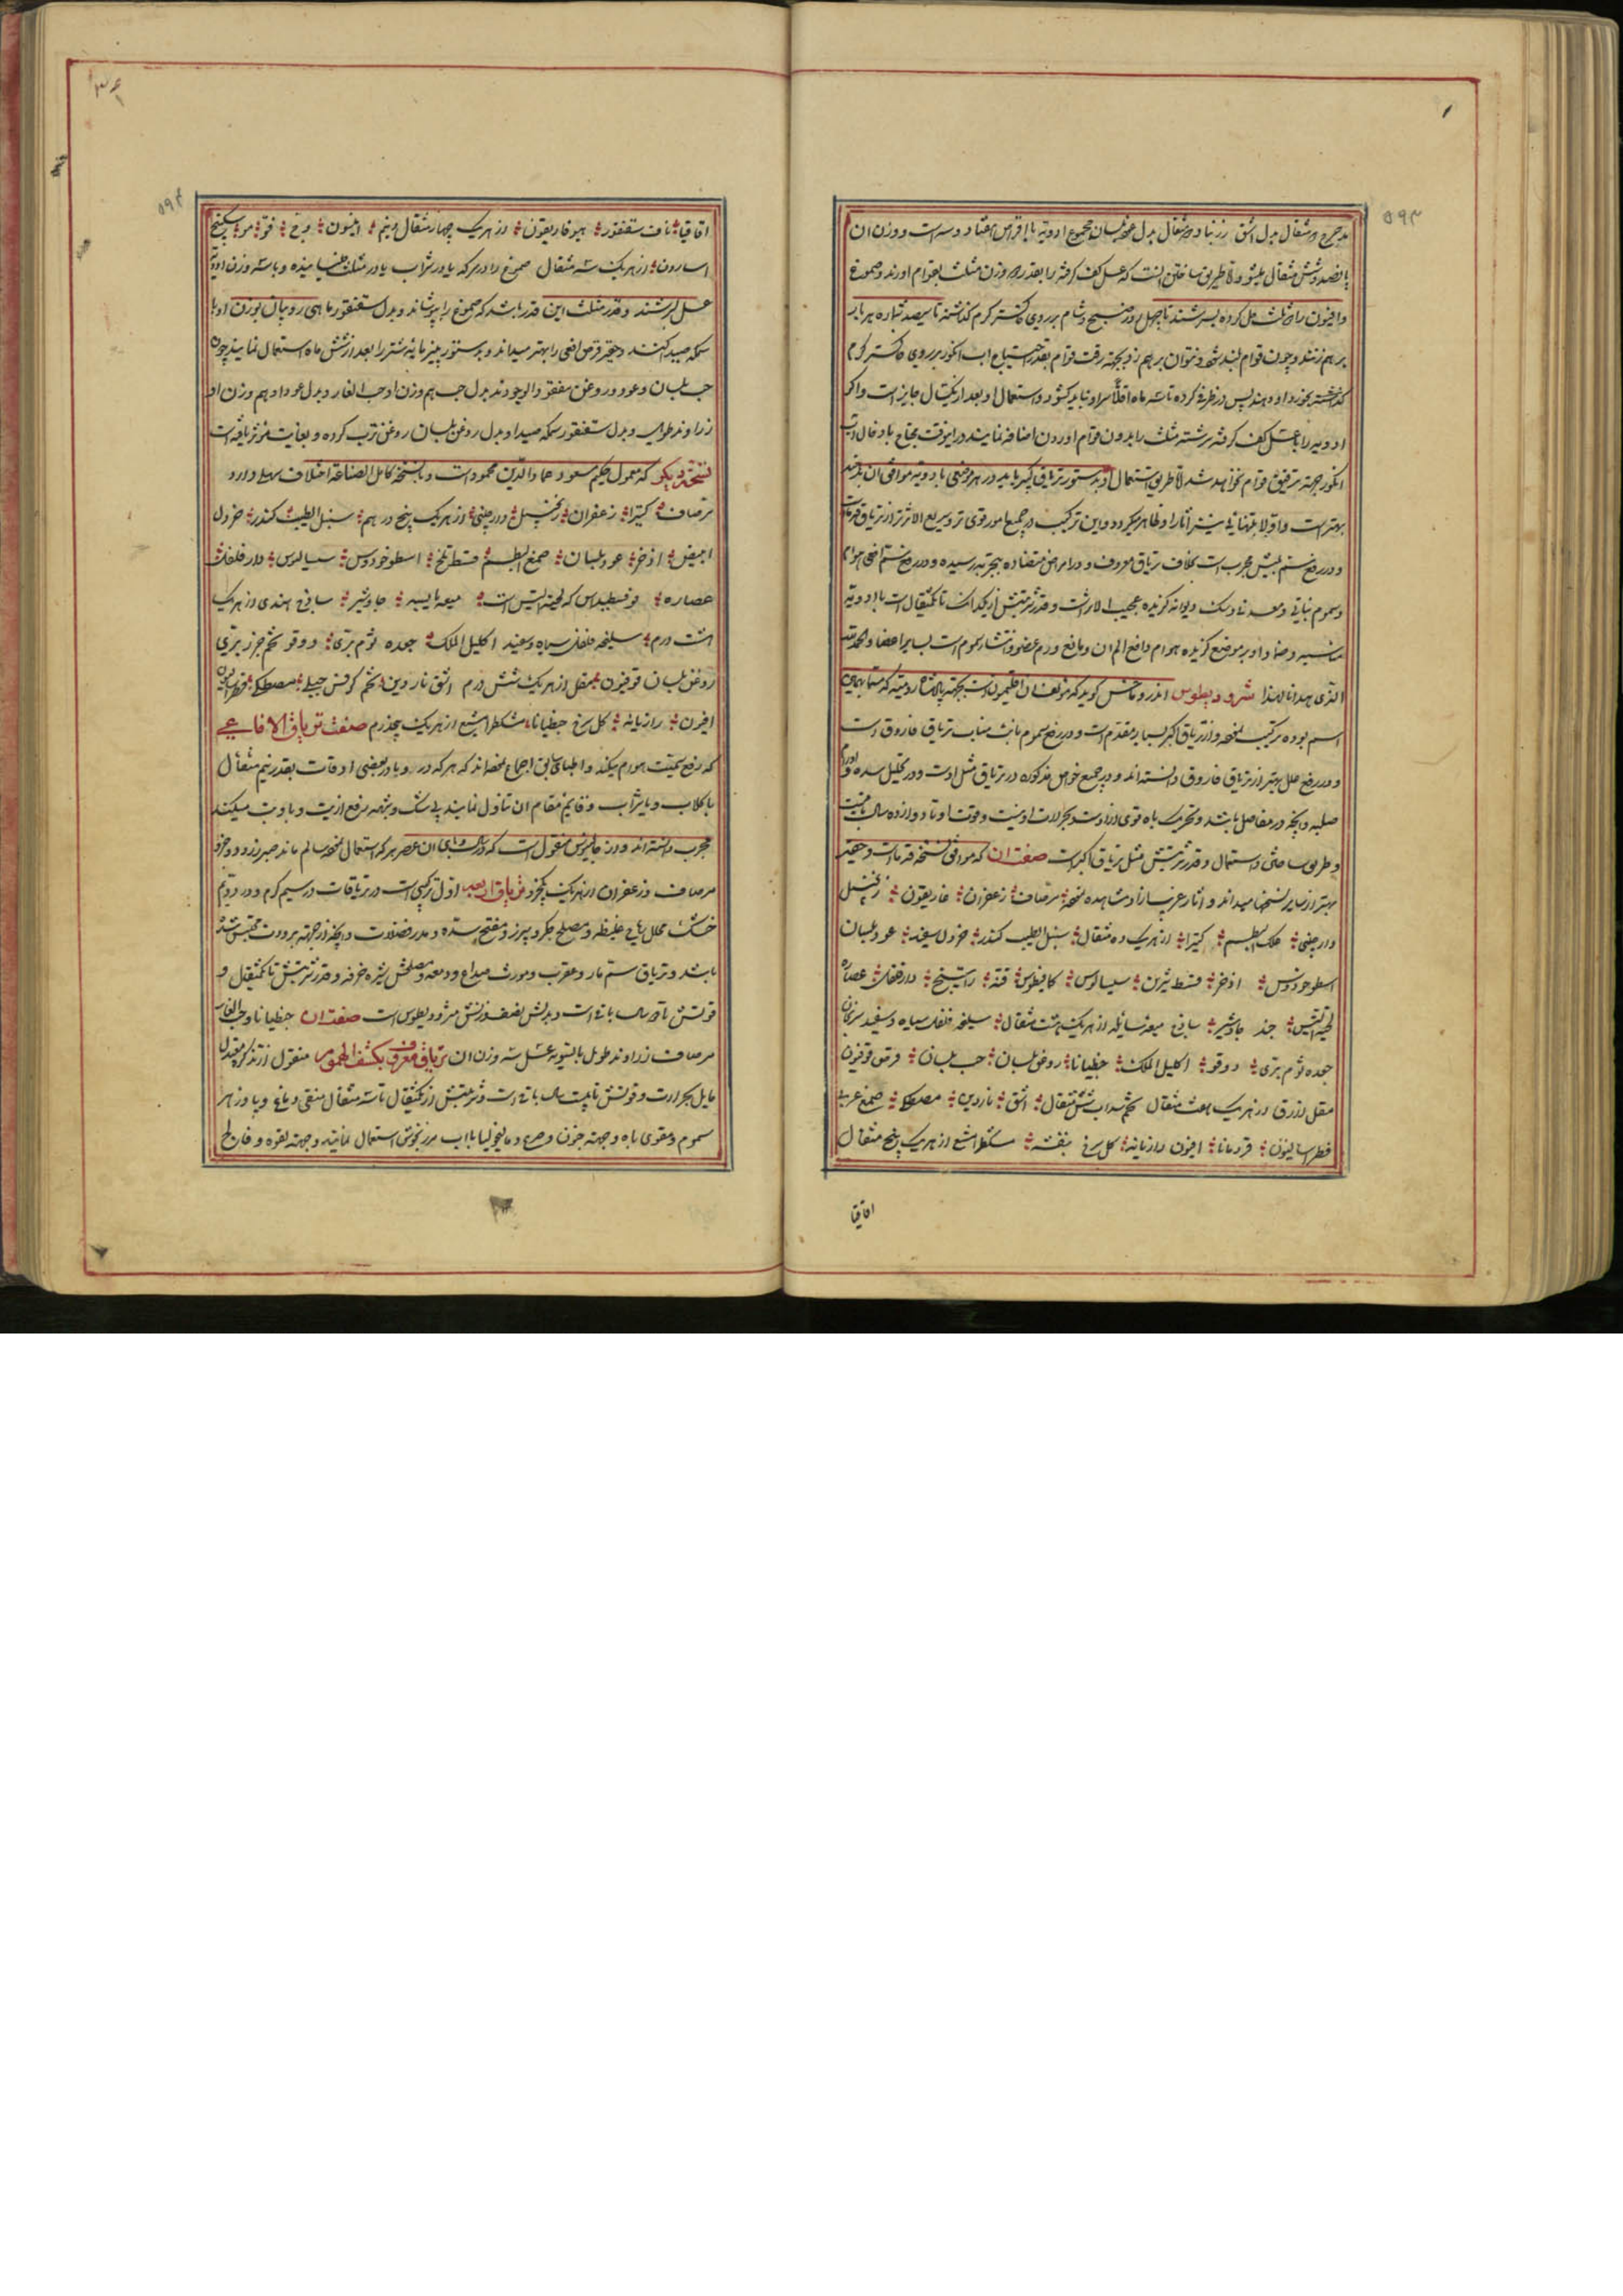 ۵۹۳
بانصد و شش مثقال میشود و طریق ساختن انست که عسل کف کرفته را بقدر وزن مثلث بقوام اورند و صموغ
و افیون را در مثلث حل کرده بسرشند تا چهل روز صبح و شام بر روی خاکستر کرم کذاشته تا سیصد
بر هم زنند و چون قوام بجهة رقت قوام بقدر احتیاج اب انکور بر روی خاکستر کرم
کذاشته پس در ظرفی کرده تا سه ماه اقلا سر او نباید کشود و استعمال او بعد از یکسال جایز است و اکر
ادویه را با عسل کف کرفته سرشته مثلث را بدون قوام اوردن اضافه نمایند در اینوقت محتاج بادخال اب
انکور جهة ترقیق قوام نخواهد شد و طریق استعمال او بدستور تریاق کبیر باید در هر مرضی با ادویه موافق ان
بهتر است و این ترکیب در جمیع امور قوی تر و سریع الاثر تر از تریاق
و در رفع سم بیش مجرب است بخلاف تریاق معروف و در امراض متضاده بتجربه رسیده و در رفع سم افعی
و سموم نباتی و معدنی و سک دیوانه کزیده عجیب الاثر است و قدر شربتش از یکدانک تا یکمثقال است با ادویه
مناسبه و ضماد او بر موضع کزیده هوام دافع الم ان و مانع ورم عضو و انتشار سموم است بسایر اعضا و الحمد لله
الذی هدانا لهذا شرودیطوس اندروماخس کوید که مؤلف ان افلیمون است بجهة پادشاه رومیه که مسما بهمین
اسم بوده ترکیب نموده و از تریاق کبیر بسیار مقدم است و در رفع سموم نایب مناب تریاق فاروق است
و در رفع علل بهتر از تریاق فاروق دانسته اند و در جمیع خواص مذکوره در تریاق مثل اوست و در تحلیل سده و اورام
صلبه و انچه در مفاصل باشد و تحریک باه قوی از اوست و بحرارت او نیست و قوت او تا دوازده سال باقیست
و طریق ساختن و استعمال و قدر شربتش مثل تریاق اکبر است صفت ان که موافق نسخه قدما است و حقیر
بهتر از سایر نسخها میداند و اثار غریبه از او مشاهده نموده مرصاف زعفران غاریقون زنجبیل
دارچینی علک البطم کتیرا از هر یک ده مثقال سنبل الطیب کندر خردل سفید عود بلسان
اسطوخودوس اذخر قسط شیرین سیسالیوس کمافیطوس قنه راتینج دارفلفل عصاره
لحیة التیس جند جاوشیر ساذج میعه سائله از هر یک هشت مثقال سلیخه فلفل سیاه و سفید
جعده ثوم بری دوقو اکلیل الملک جنطیانا روغن بلسان حب بلسان قرص قوفیون
مقل ازرق از هر یک هفت مثقال تخم سداب شش مثقال اشق ناردین مصطکی صمغ عربی
فطراسالیون قردمانا افیون رازیانه کل سرخ بنفشه مشکطرامشیع از هر یک پنج مثقال
اقاقیا
۵۹۴
اقاقیا ناف سقنقور هیوفاریقون از هر یک چهار مثقال و نیم انیسون وج فو مو سکبینج
اسارون از هر یک سه مثقال صموغ را در سرکه یا در شراب یا در مثلث خیسانیده و با سه وزن ادویه
عسل بسرشند و قدر مثلث این قدر باشد که صموغ را بپوشاند و بدل سقنقور ماهی روبیان بوزن او یا
سمکه صیدا کنند و حقیر قرص افعی را بهتر میداند و بدستور پنیرمایه شتر را بعد از شش ماه استعمال نمایند و چون
حب بلسان و عود و روغن مفقود الوجودند بدل حب هم وزن او حب الغار و بدل عود او هم وزن او
زراوند طویل و بدل سقنقور سمکه صیدا و بدل روغن بلسان روغن ترب کرده و بغایت مؤثر یافته است
نسخه دیکر که معمول حکیم مسعود و عماد الدین محمود است و با نسخه کامل الصناعه اختلاف سهلی دارد
مرصاف کتیرا زعفران زنجبیل دارچینی از هر یک پنج درهم سنبل الطیب کندر خردل
ابیض اذخر عود بلسان صمغ البطم قسط تلخ اسطوخودوس سیسالیوس دارفلفل
عصاره هوفسطیداس که لحیة التیس است میعه یابسه جاوشیر ساذج هندی از هر یک
هشت درم سلیخه فلفل سیاه و سفید اکلیل الملک جعده ثوم بری دوقو تخم جزر بری
روغن بلسان قوفیون مقل از هر یک شش درم اشق ناردین تخم کرفس جبلی مصطکی فطراسالیون
افیون رازیانه کل سرخ جنطیانا مشکطرامشیع از هر یک پنجدرم صفت تریاق الافاعی
که رفع سمیت هوام میکند و اطبای سابق اجماع نموده اند که هرکه در وبا در بعضی اوقات بقدر نیم مثقال
با کلاب و یا شراب و قایم مقام ان تناول نمایند بی شک و شبهه رفع اذیت وبا و تب میکند
مجرب دانسته اند و از جالینوس منقول است که در وبای ان عصر هرکه استعمال نموده سالم ماند صبر زرد دو جزو
مرصاف و زعفران از هر یک یکجزو تریاق اربعه اول ترکیبی است در تریاقات در سیم کرم و در دویم
خشک محلل ریاح غلیظه و مصلح جکر و سپرز و مفتح سده و مدر فضلات و انچه از جهة برودت محتبس شده
باشد و تریاق سم مار و عقرب و مورث صداع و دمعه و مصلحش شیره خرفه و قدر شربتش تا یکمثقال و
قوتش تا دو سال باقی است و بدلش نصف وزنش مثرودیطوس است صفت ان جنطیانا و حب الغار
مرصاف زراوند طویل بالسویه عسل سه وزن ان تریاق معروف بکشف الهموم منقول از تذکره معتدل
مایل بحرارت و قوتش تا بیست سال باقی است و شربتش از یکمثقال تا سه مثقال منقی دماغ و پادزهر
سموم و مقوی باه و جهة جنون و صرع و مالیخولیا با اب مرزنجوش استعمال نمایند و جهة لقوه و فالج